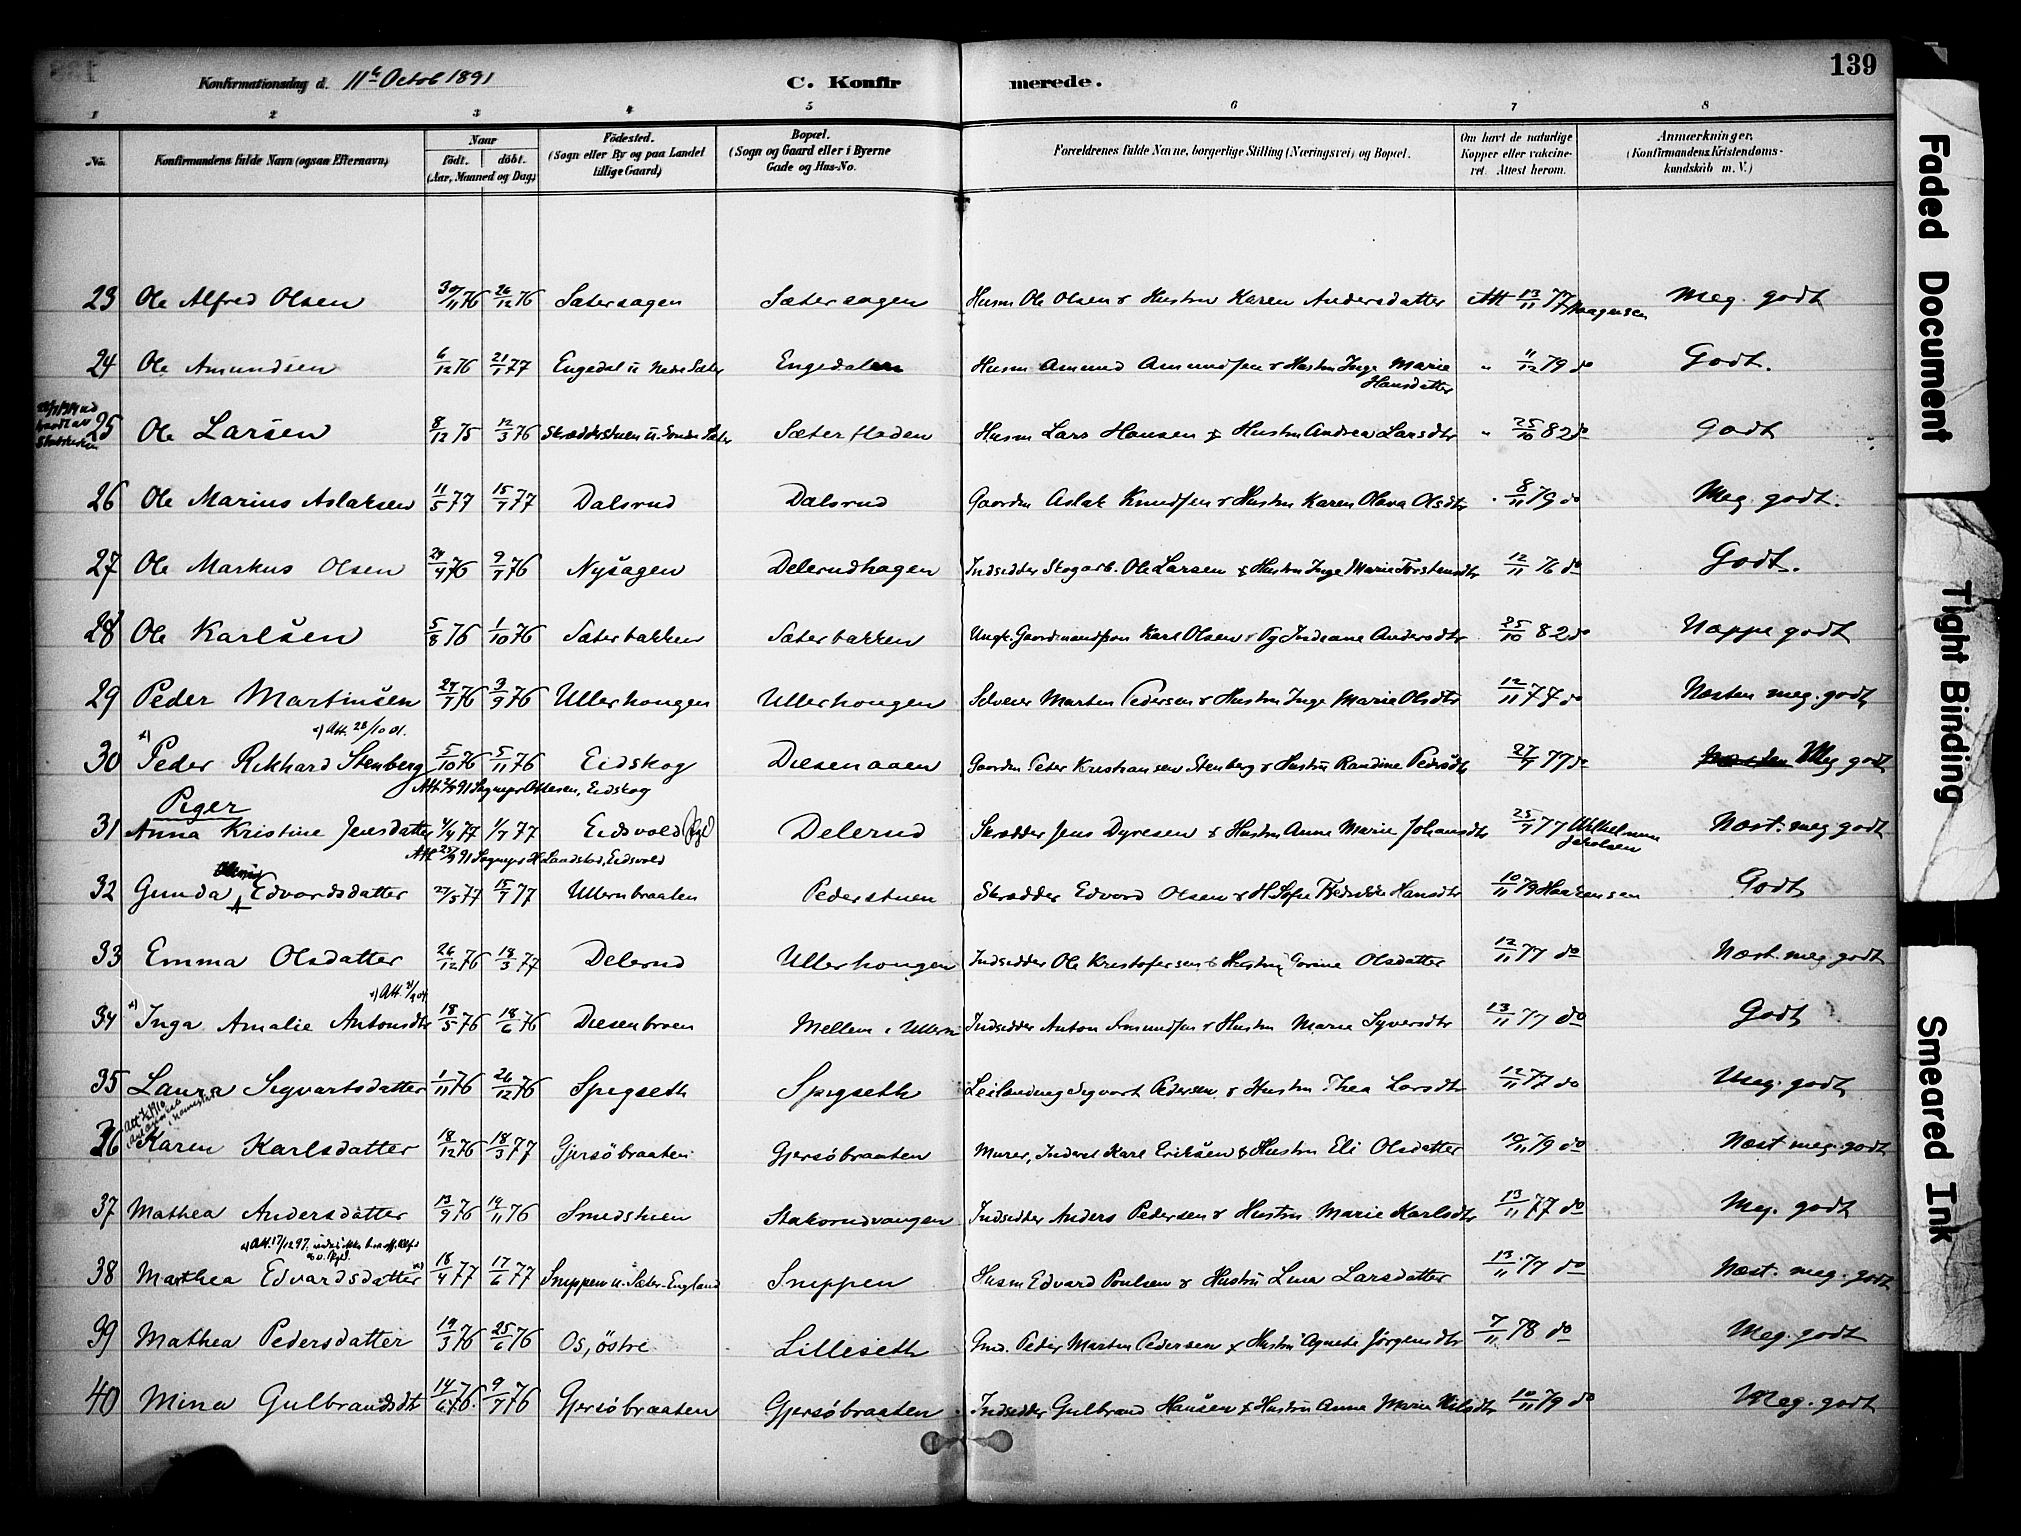 Konfirmationsdag d. 11te Octob 1891 C. Konfirmerede. 139
1 2 3 4 5 6 7 8
No. Konfirmandens fulde Navn (ogsaa Efternavn) Naar født. døbt. (Aar, Maaned og Dag) Fødested. (Sogn eller By og paa Landet tillige Gaard) Bopæl. (Sogn og Gaard eller i Byerne Gade og Hus-No. Forældrenes fulde Navne, borgerlige Stilling (Næringsvei) og Bopæl. Om havt de naturlige Kopper eller vakcineret. Attest herom. Anmærkninger. (Konfirmandens Kristendomskundskab m. V.)
23 Ole Alfred Olsen 30/11 76 26/12 76 Sætersagen Sætersagen Husm Ole Olsen & Hustru Karen Andersdatter Att 13/11 77 Haagensen Meg. godt
24 Ole Amundsen 6/12 76 21/1 77 Engedal u Nedre Sæter Engedalen Husm Amund Amundsen & Hustru Inge Marie Hansdatter " 11/12 79 do Godt.
25 Ole Larsen 8/12 75 12/3 76 Skrædderstuen u. Søndre Sæter Sæterfladen Husm Lars Hansen & Hustru Andrea Larsdtr " 25/10 82 do Godt
26 Ole Marius Aslaksen 11/5 77 15/7 77 Dalsrud Dalsrud Gaardm Aslak Knudsen & Hustru Karen Olava Olsdtr " 8/11 79 do Meg. godt.
27 Ole Markus Olsen 24/4 76 9/7 76 Nysagen Delerudhagen Indsidder Skogarb. Ole Larsen & Hustru Inge Marie Torstensdtr 12/11 76 do Godt.
28 Ole Karlsen 5/8 76 1/10 76 Sæterbakken Sæterbakken Ungk. Gaardmandssøn Karl Olsen & Pg Indiane Andersdtr 25/10 82 do Næppe godt
29 Peder Martinsen 27/7 76 3/9 76 Ullerhougen Ullerhougen Selveier Marten Pedersen & Hustru Inge Marie Olsdtr 12/11 77 do Næsten meg. godt
x) Att. 28/10 01.
30 x) Peder Rikhard Stenberg 5/10 76 5/11 76 Eidskog Diesenaaen Gaardm Peter Kristiansen Stenberg & Hustru Randine Pedersdtr 27/7 77 do Næsten Meg godt
Att 2/9 91 Sognepr Ottesen, Eidskog
Piger
31 Anna Kristine Jensdatter 4/4 77 1/7 77 Eidsvold (pgld) Delerud Skrædder Jens Dyresen & Hustru Anne Marie Johansdtr 25/9 77 Wilhelmine Jakobsen Næst. meg godt
Att 25/9 91 Sognepr H Landstad, Eidsvold
32 Gunda Edvardsdatter 27/5 77 15/7 77 Ullernbraaten Pederstuen Skrædder Edvard Olsen & H Sofie Fredrikke Hansdtr 10/11 79 Haagensen Godt
33 Emma Olsdatter 26/12 76 18/3 77 Delerud Ullerhougen Indsidder Ole Kristofersen & Hustru Gorine Olsdatter 12/11 77 do Næst. meg. godt
34 x) Inga Amalie Antonsdtr 18/5 76 18/6 76 Diesenbroen Mellem i Ullern Indsidder Anton Amundsen & Hustru Marie Syversdtr 13/11 77 do Godt
35 Laura Sigvartsdatter 1/11 76 26/12 76 Spigseth Spigseth Leilending Sigvart Pedersen & Hustru Thea Larsdtr 12/11 77 do Meg. godt
36 Karen Karlsdatter 18/12 76 18/3 77 Gjersöbraaten Gjersöbraaten Murer, Inderst Karl Eriksen & Hustru Eli Olsdatter 10/11 79 do Næst meg. godt
37 Mathea Andersdatter 13/9 76 19/11 76 Smedstuen Stakerudvangen Indsidder Anders Pedersen & Hustru Marie Karlsdtr 13/11 77 do Meg. godt
38 Marthea Edvardsdatter x) 18/4 77 17/6 77 Snippen u. Sæter-England Snippen Husm Edvard Poulsen & Hustru Lina Larsdatter 13/11 77 do Næst. meg. godt
39 Mathea Pedersdatter 19/3 76 25/6 76 Os, östre Lilleseth Gmd. Peder Martin Pedersen & Hustru Agnete Jørgensdtr 7/11 78 do Meg. godt
40 Mina Gulbrandsdtr 14/6 76. 9/7 76 Gjersöbraaten Gjersöbraaten Indsidder Gulbrand Hansen & Hustru Anne Marie Nilsdtr 10/11 79 do Meg. godt
Faded Document
Tight Binding
Smeared Ink